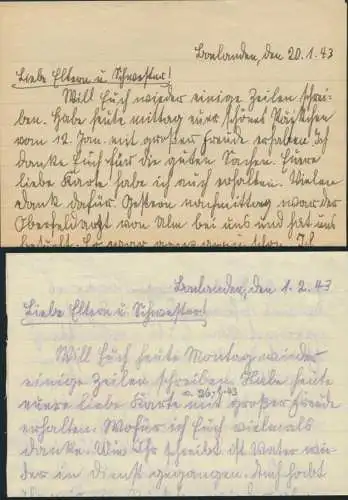 Bonlanden, den 20.1.43
Liebe Eltern u. Schwester!
Will Euch wieder einige Zeilen schrei-
ben. Habe heute mittag euer schönes Päckchen
vom 12. Jan. mit großer Freude erhalten. Ich
danke Euch für die guten Sachen. Eure
liebe Karte habe ich auch erhalten. Vielen
Dank dafür. Gestern nachmittag war der
Oberfeldarzt von Ulm bei uns und hat uns
besucht. Er war ganz
Bonlanden, den 1.2.43
Liebe Eltern u. Schwester!
Will Euch heute Montag wieder
einige Zeilen schreiben. Habe heute
eure liebe Karte v. 26.1.43 mit großer Freude
erhalten. Wofür ich Euch vielmals
danke. Wie Ihr schreibt ist Vater wie-
der in Dienst gegangen.